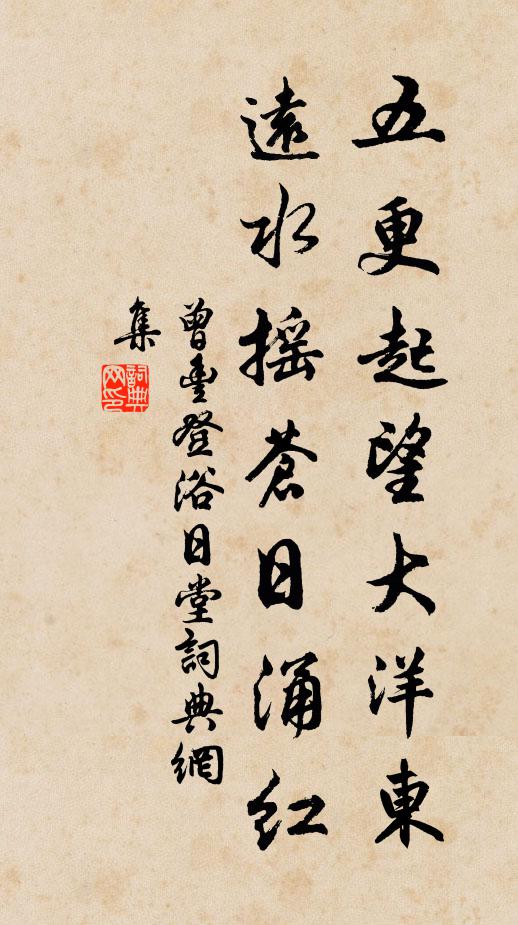 五更起望大洋東
遠水摇蒼日涌紅
曾豊登浴日堂詞典網
集
詞典
网印